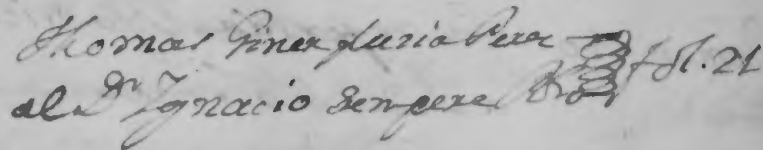 Thomas Giner y Luria Perez fol. 21
al Dr. Ignacio Sempere